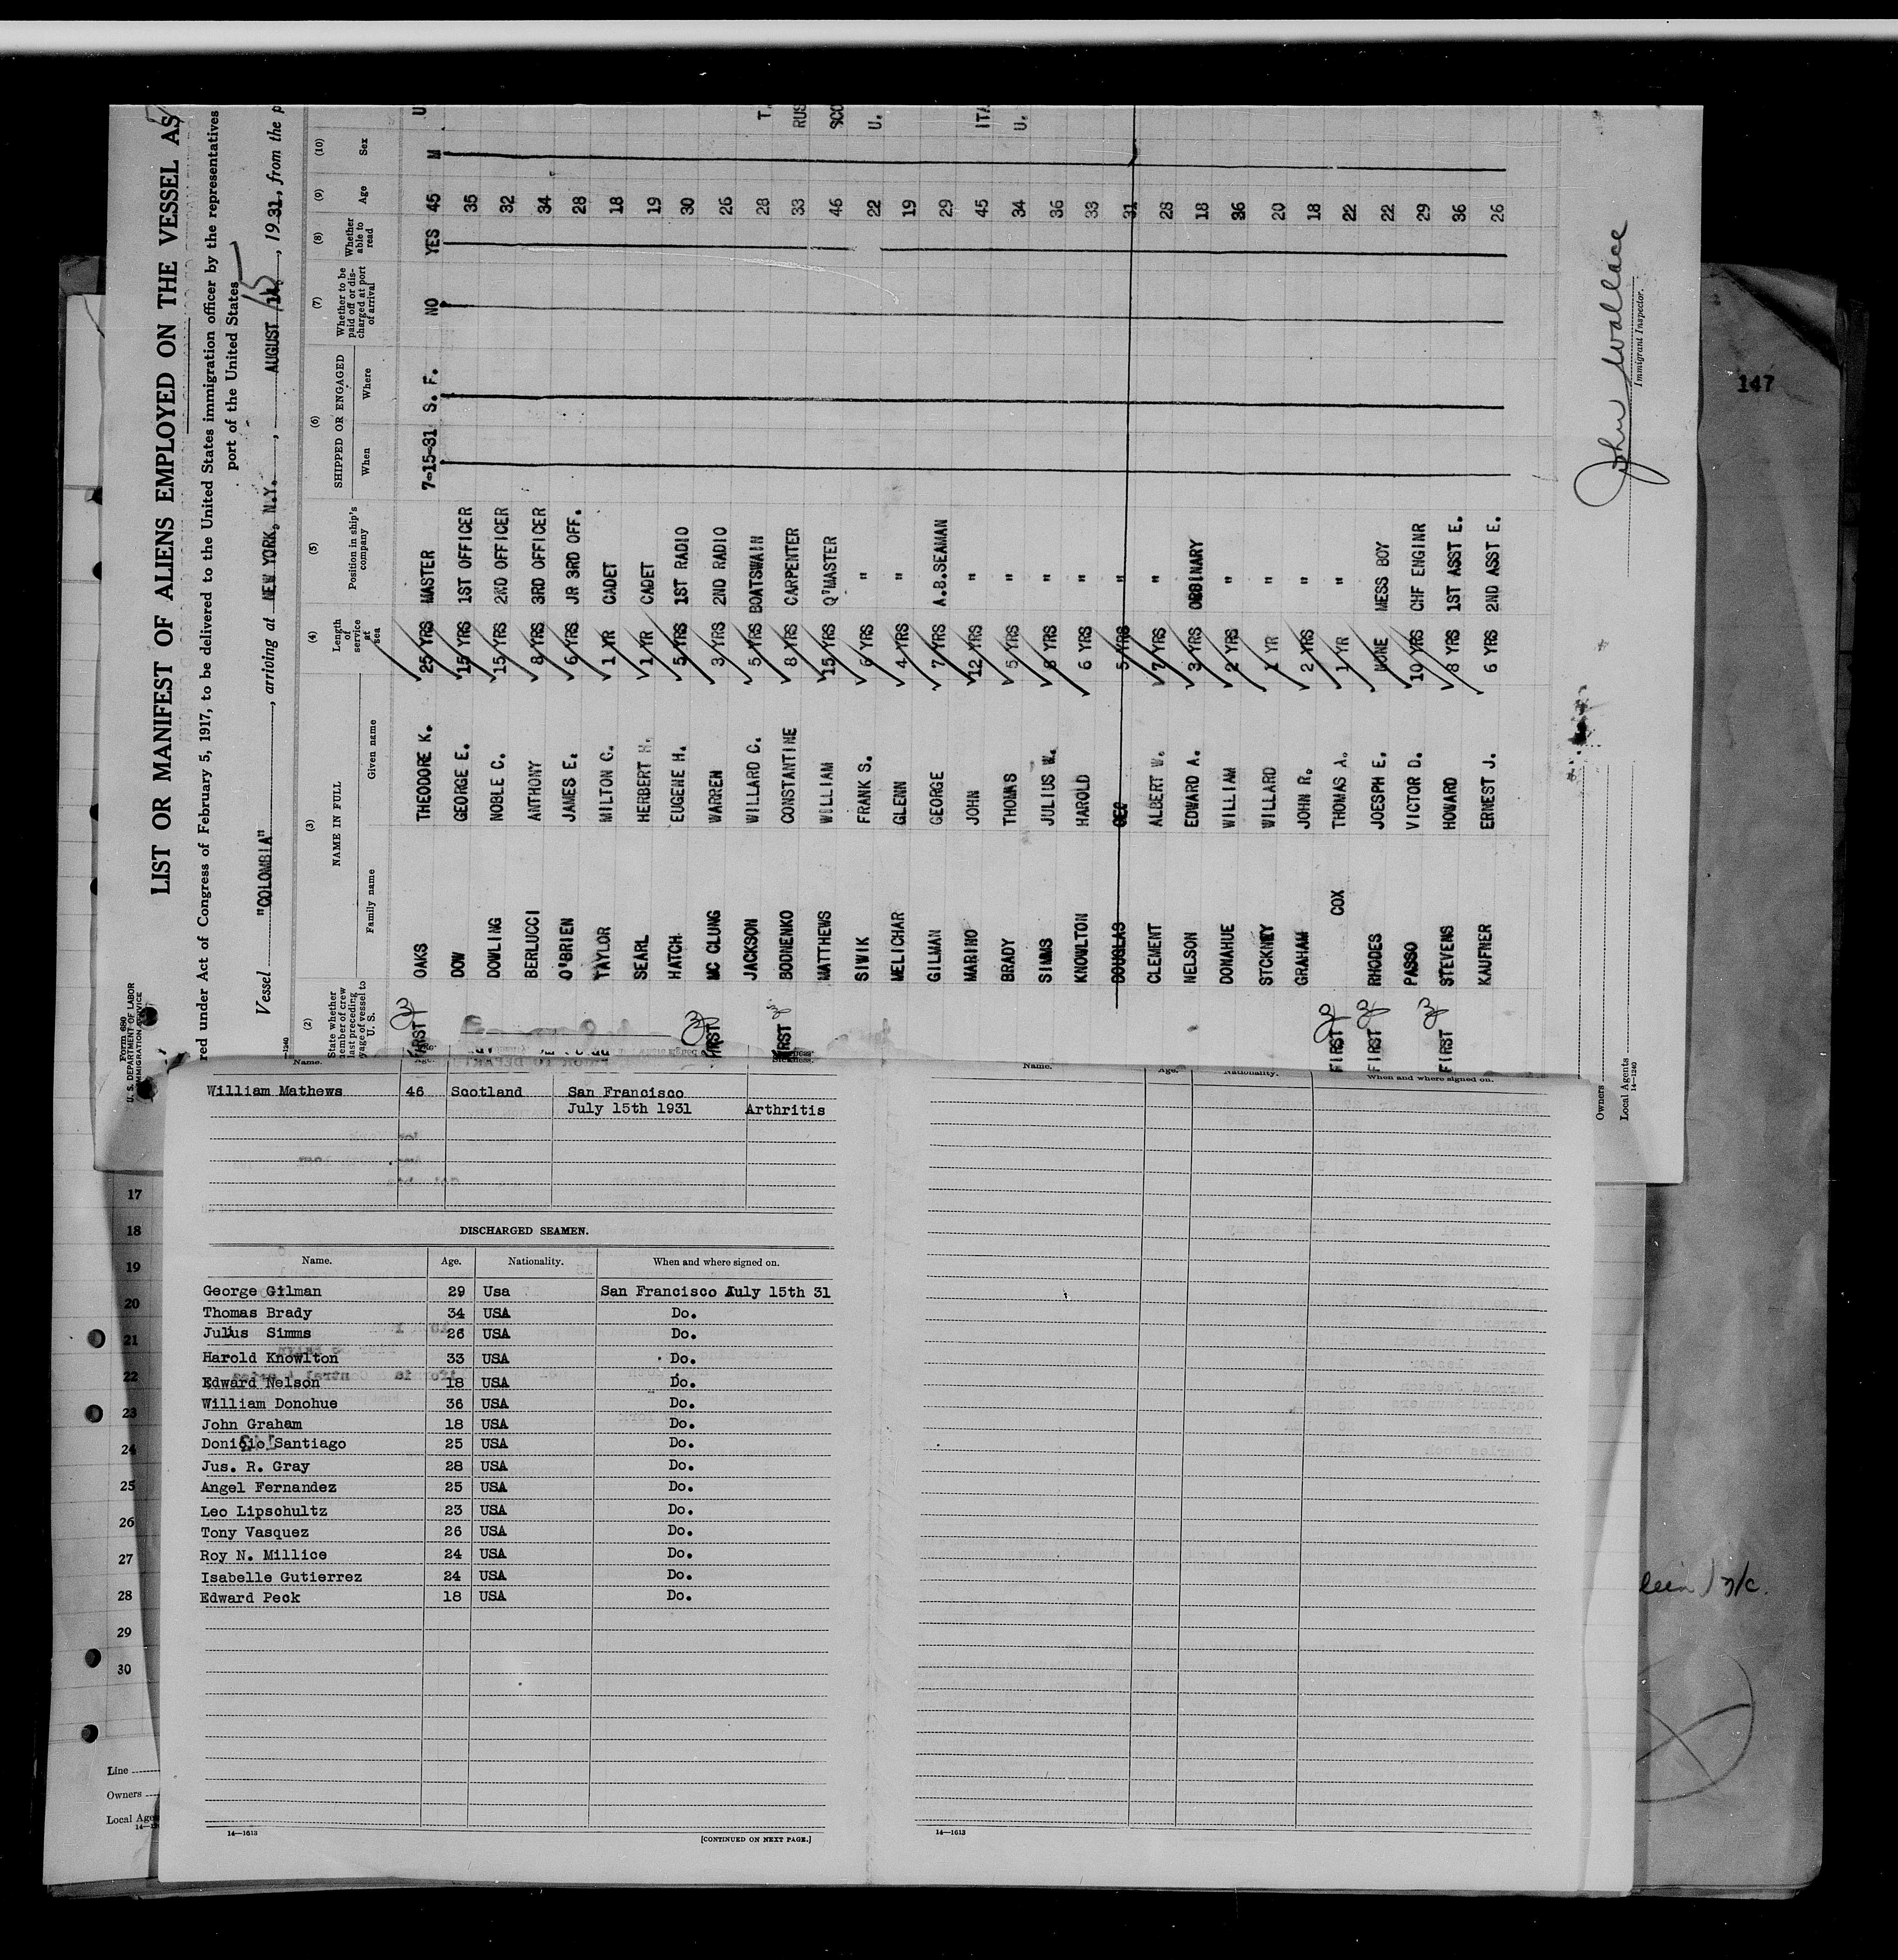 Form 680
U. S. DEPARTMENT OF LABOR
IMMIGRATION SERVICE
LIST OR MANIFEST OF ALIENS EMPLOYED ON THE VESSEL AS
red under Act of Congress of February 5, 1917, to be delivered to the United States immigration officer by the representatives
port of the United States
Vessel "COLOMBIA", arriving at NEW YORK, N.Y., AUGUST 15, 1931, from the p
(2) (3) (4) (5) (6) (7) (8) (9) (10)
State whether member of crew last preceding voyage of vessel to U. S.
NAME IN FULL
Family name Given name
Length of service at sea
Position in ship's company
SHIPPED OR ENGAGED
When Where
Whether to be paid off or discharged at port of arrival
Whether able to read
Age
Sex
FIRST OAKS THEODORE K. 25 YRS MASTER 7-15-31 S. F. NO YES 45 M U
DOW GEORGE E. 15 YRS 1ST OFFICER 35
DOWLING NOBLE C. 15 YRS 2ND OFFICER 32
BERLUCCI ANTHONY 8 YRS 3RD OFFICER 34
O'BRIEN JAMES E. 6 YRS JR 3RD OFF. 28
TAYLOR MILTON G. 1 YR CADET 18
SEARL HERBERT H. 1 YR CADET 19
HATCH EUGENE H. 5 YRS 1ST RADIO 30
FIRST MC CLUNG WARREN 3 YRS 2ND RADIO 26
JACKSON WILLARD C. 5 YRS BOATSWAIN 28 T.
FIRST BODNENKO CONSTANTINE 8 YRS CARPENTER 33 RUS
MATTHEWS WILLIAM 15 YRS Q'MASTER 46 SCO
SIWIK FRANK S. 6 YRS " 22 U.
MELICHAR GLENN 4 YRS " 19
GILMAN GEORGE 7 YRS A.B.SEAMAN 29
MARINO JOHN 12 YRS " 45 ITA
BRADY THOMAS 5 YRS " 34 U.
SIMMS JULIUS W. 6 YRS " 36
KNOWLTON HAROLD 6 YRS " 33
DOUGLAS GEO 5 YRS " 31
CLEMENT ALBERT W. 7 YRS " 28
NELSON EDWARD A. 3 YRS ORDINARY 18
DONAHUE WILLIAM 2 YRS " 36
STCKNEY WILLARD 1 YR " 20
GRAHAM JOHN R. 2 YRS " 18
FIRST COX THOMAS A. 1 YR " 22
FIRST RHODES JOESPH E. NONE MESS BOY 22
PASSO VICTOR D. 10 YRS CHF ENGINR 29
FIRST STEVENS HOWARD 8 YRS 1ST ASST E. 36
KAUFNER ERNEST J. 6 YRS 2ND ASST E. 26
John Wallace
Immigrant Inspector.
Owners
Local Agents
14—1240
147
Name.
William Mathews 46 Scotland San Francisco
July 15th 1931 Arthritis
DISCHARGED SEAMEN.
Name. Age. Nationality. When and where signed on.
George Gilman 29 Usa San Francisco July 15th 31
Thomas Brady 34 USA Do.
Julius Simms 26 USA Do.
Harold Knowlton 33 USA Do.
Edward Nelson 18 USA Do.
William Donohue 36 USA Do.
John Graham 18 USA Do.
Donicio Santiago 25 USA Do.
Jus. R. Gray 28 USA Do.
Angel Fernandez 25 USA Do.
Leo Lipschultz 23 USA Do.
Tony Vasquez 26 USA Do.
Roy N. Millice 24 USA Do.
Isabelle Gutierrez 24 USA Do.
Edward Peck 18 USA Do.
14—1613
[CONTINUED ON NEXT PAGE.]
Name. Age. Nationality. When and where signed on.
14—1613
17
18
19
20
21
22
23
24
25
26
27
28
29
30
Line
Owners
Local Age